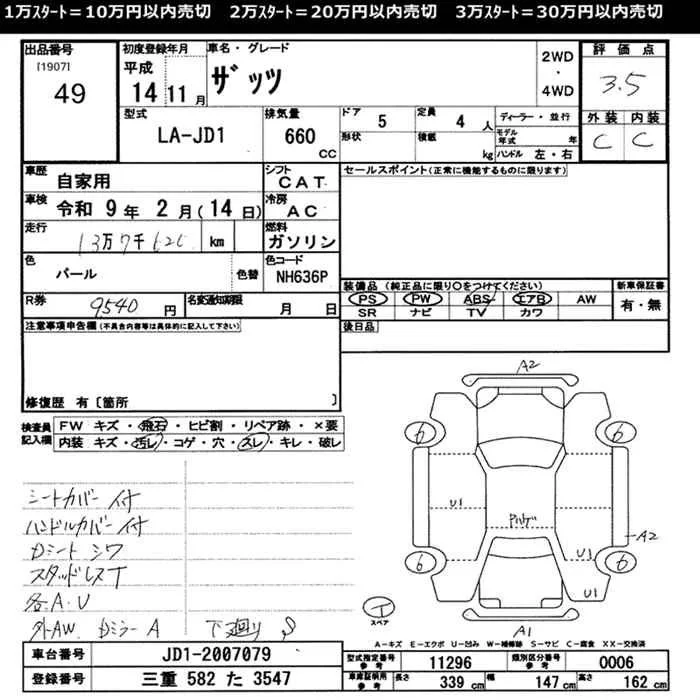 1万スタート＝10万円以内売切　2万スタート＝20万円以内売切　3万スタート＝30万円以内売切
出品番号 初度登録年月 車名・グレード 2WD・4WD 評価点
[1907] 平成 ザッツ 3.5
49 14 11月
型式 LA-JD1 排気量 660 CC ドア 5 定員 4人 ディーラー・並行 外装 内装
形状 積載 kg モデル年式 年 ハンドル 左・右 C C
車歴 自家用 シフト CAT セールスポイント(正常に機能するものに限ります)
車検 令和 9年 2月(14日) 冷房 AC
走行 13万7千 km 燃料 ガソリン
色 パール 色替 色コード NH636P 装備品(純正品に限り○をつけてください) 新車保証書
R券 9540円 名変通知期限 月 日 PS PW ABS エアB AW 有・無
SR ナビ TV カワ
注意事項申告欄(不具合内容等は具体的に記入して下さい) 後日品
修復歴 有〔箇所 〕
検査員記入欄 FW キズ・飛石・ヒビ割・リペア跡・×要
内装 キズ・汚レ・コゲ・穴・スレ・キレ・破レ
A2
6 6
シートカバー付 U1
ハンドルカバー付
Dシート シワ A2
スタッドレスT 6 6 U1
各A.U U1
外AW Dミラー A 下廻り S
T スペア
A1
A－キズ E－エクボ U－凹み W－補修跡 S－サビ C－腐食 XX－交換済
車台番号 JD1-2007079 型式指定番号参考 11296 類別区分番号参考 0006
登録番号 三重 582 た 3547 車庫証明用参考 長さ 339 cm 幅 147 cm 高さ 162 cm